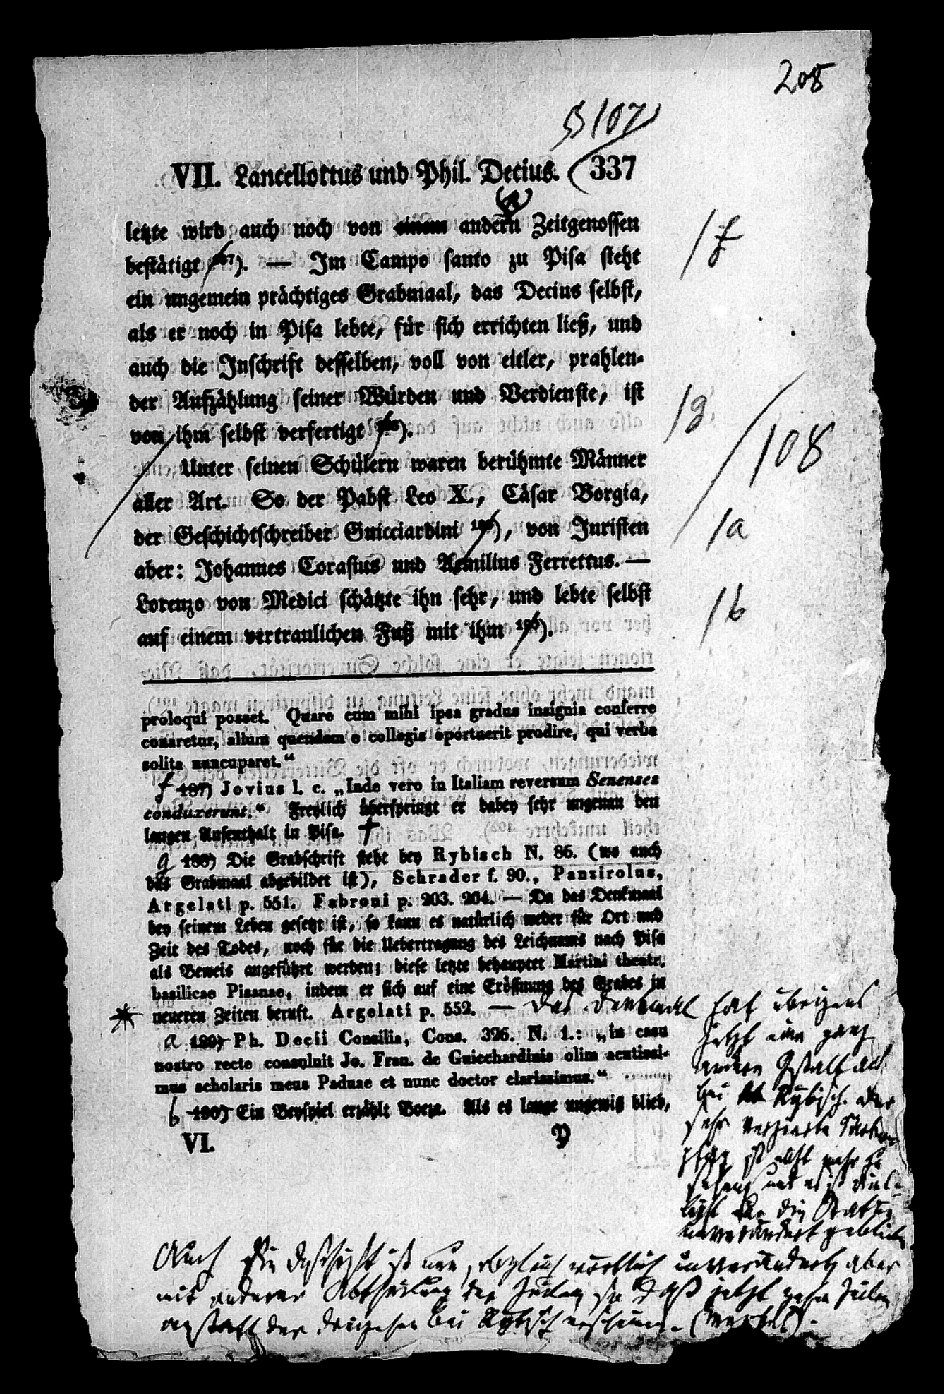 208
§ 107
VII. Lancellottus und Phil. Decius. 337
letzte wird auch noch von einem andern Zeitgenossen
bestätigt 187). — Im Campo santo zu Pisa steht
ein ungemein prächtiges Grabmaal, das Decius selbst,
als er noch in Pisa lebte, für sich errichten ließ, und
auch die Inschrift desselben, voll von eitler, prahlen-
der Aufzählung seiner Würden und Verdienste, ist
von ihm selbst verfertigt 188).
Unter seinen Schülern waren berühmte Männer
aller Art. So der Pabst Leo X., Cäsar Borgia,
der Geschichtschreiber Guicciardini 189), von Juristen
aber: Johannes Corasius und Aemilius Ferrettus. —
Lorenzo von Medici schätzte ihn sehr, und lebte selbst
auf einem vertraulichen Fuß mit ihm 190).
f
g
108
a
b
proloqui posset. Quare cum mihi ipsa gradus insignia conferre
conaretur, alium quendam e collegio oportuerit prodire, qui verba
solita nuncuparet.“
f 187) Jovius l. c. „Inde vero in Italiam reversum Senenses
conduxerunt.“ Freylich überspringt er dabey sehr ungenau den
langen Aufenthalt in Pisa. †
g 188) Die Grabschrift steht bey Rybisch N. 86. (wo auch
das Grabmaal abgebildet ist), Schrader f. 90., Panzirolus,
Argelati p. 551. Fabroni p. 203. 204. — Da das Denkmaal
bey seinem Leben gesetzt ist, so kann es natürlich weder für Ort und
Zeit des Todes, noch für die Uebertragung des Leichnams nach Pisa
als Beweis angeführt werden; diese letzte behauptet Martini theatr.
basilicae Pisanae, indem er sich auf eine Eröffnung des Grabes in
neueren Zeiten beruft. Argelati p. 552. — Das Denkmal hat übrigens
jetzt eine ganz
andere Gestalt als
bei Rybisch. Der
sehr verzierte
ist nicht mehr zu
sehen, und es ist viel-
leicht nur die Statue
unverändert geblieben
a 189) Ph. Decii Consilia, Cons. 326. N. 1.: „in casu
nostro recte consuluit Jo. Fran. de Guicchardinis olim acutissi-
mus scholaris meus Paduae et nunc doctor clarissimus.“
b 190) Ein Beyspiel erzählt Boeza. Als es lange ungewiß blieb,
VI. Y
Auch die Inschrift ist neu, obgleich wörtlich unverändert, aber
mit anderer Abtheilung der Zeilen, so daß jetzt zehn Zeilen
anstatt der dreizehn bei Rybisch erscheinen.